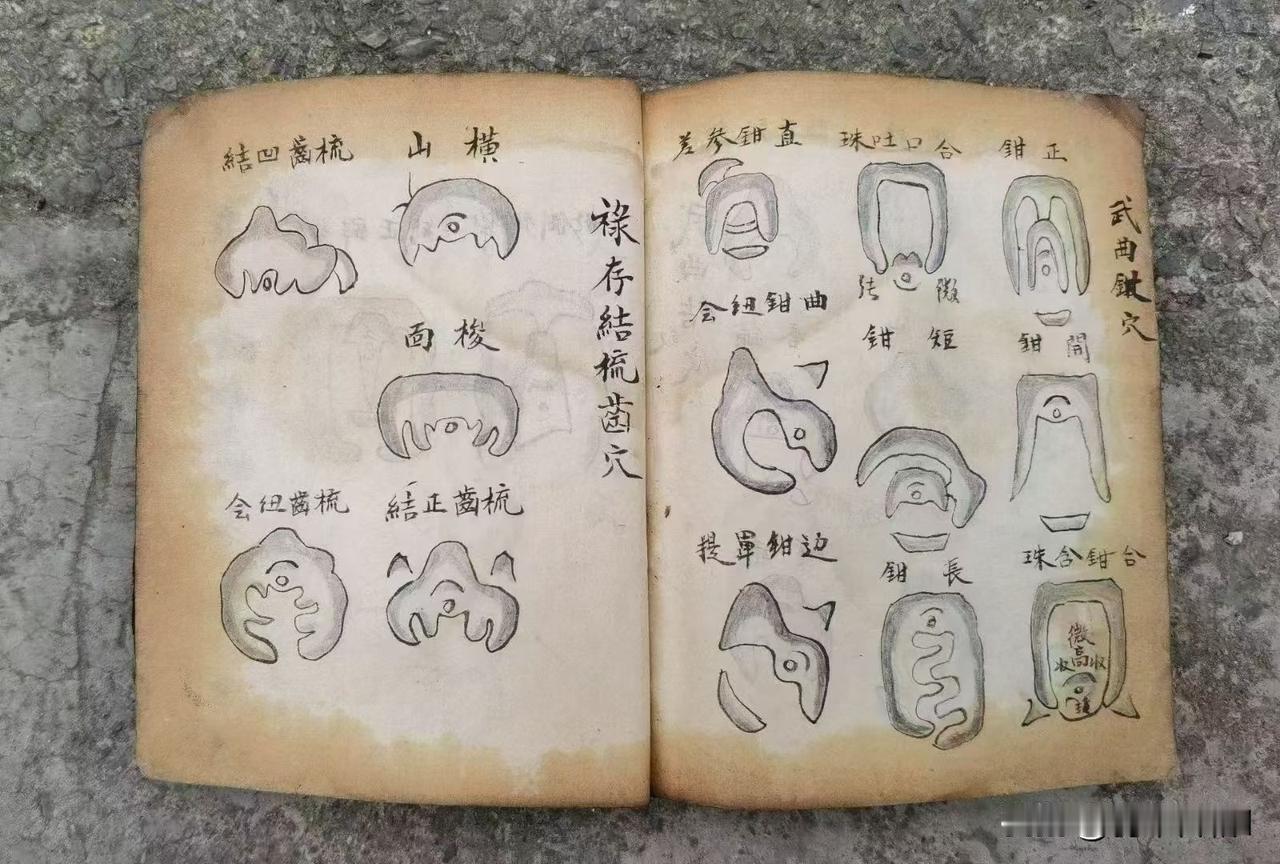 武曲穴
正鉗
開鉗
合鉗含珠
微高
收 收
合口吐珠
微张
短鉗
長鉗
直鉗參差
曲鉗紐会
边鉗單提
祿存結梳齒穴
橫山
梭面
梳齒正結
梳齒凹結
梳齒紐会